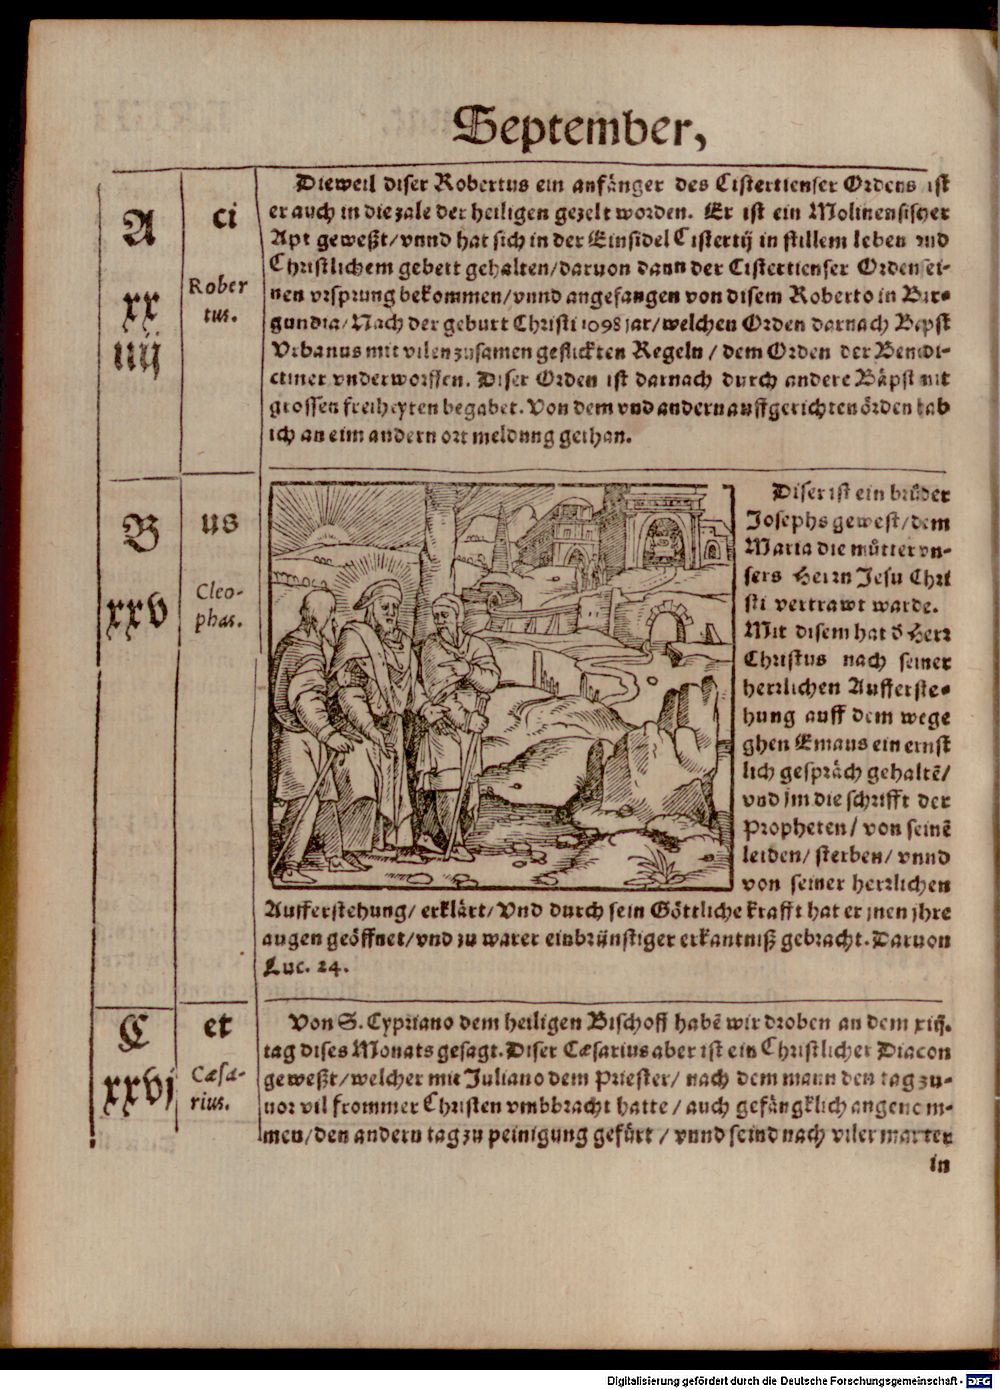 September,
A
xx
iiij
ci
Rober
tus.
Dieweil diser Robertus ein anfånger des Cistertienser Ordens ist
er auch in die zale der heiligen gezelt worden. Er ist ein Molinensischer
Apt geweßt/vnnd hat sich in der Einsidel Cistertij in stillem leben vnd
Christlichem gebett gehalten/daruon dann der Cistertienser Orden sei-
nen vrsprung bekommen/vnnd angefangen von disem Roberto in Bur-
gundia/Nach der geburt Christi 1098 jar/welchen Orden darnach Bapst
Vrbanus mit vilen zusamen geflickten Regeln / dem Orden der Benedi-
ctiner vnderworffen. Diser Orden ist darnach durch andere Båpst mit
grossen freiheyten begabet. Von dem vnd andern auffgerichten örden hab
ich an eim andern ort meldung gethan.
B
xxv
us
Cleo-
phas.
Diser ist ein brůder
Josephs gewest/dem
Maria die můtter vn-
sers Herrn Jesu Chri
sti vertrawt warde.
Mit disem hat d̕ Herr
Christus nach seiner
herrlichen Aufferste-
hung auff dem wege
ghen Emaus ein ernst
lich gespräch gehaltē/
vnd jm die schrifft der
Propheten/ von seinē
leiden/ sterben/ vnnd
von seiner herrlichen
Aufferstehung/ erklårt/ Vnd durch sein Göttliche krafft hat er jnen jhre
augen geöffnet/vnd zu warer einbrünstiger erkantniß gebracht. Daruon
Luc. 24.
C
xxvj
et
Cæsa-
rius.
Von S. Cypriano dem heiligen Bischoff habē wir droben an dem xiiij.
tag dises Monats gesagt. Diser Cæsarius aber ist ein Christlicher Diacon
geweßt/welcher mit Juliano dem Priester/ nach dem mann den tag zu-
uor vil frommer Christen vmbbracht hatte / auch gefångklich angenem-
men/den andern tag zu peinigung gefůrt / vnnd seind nach viler marter
in
Digitalisierung gefördert durch die Deutsche Forschungsgemeinschaft - DFG